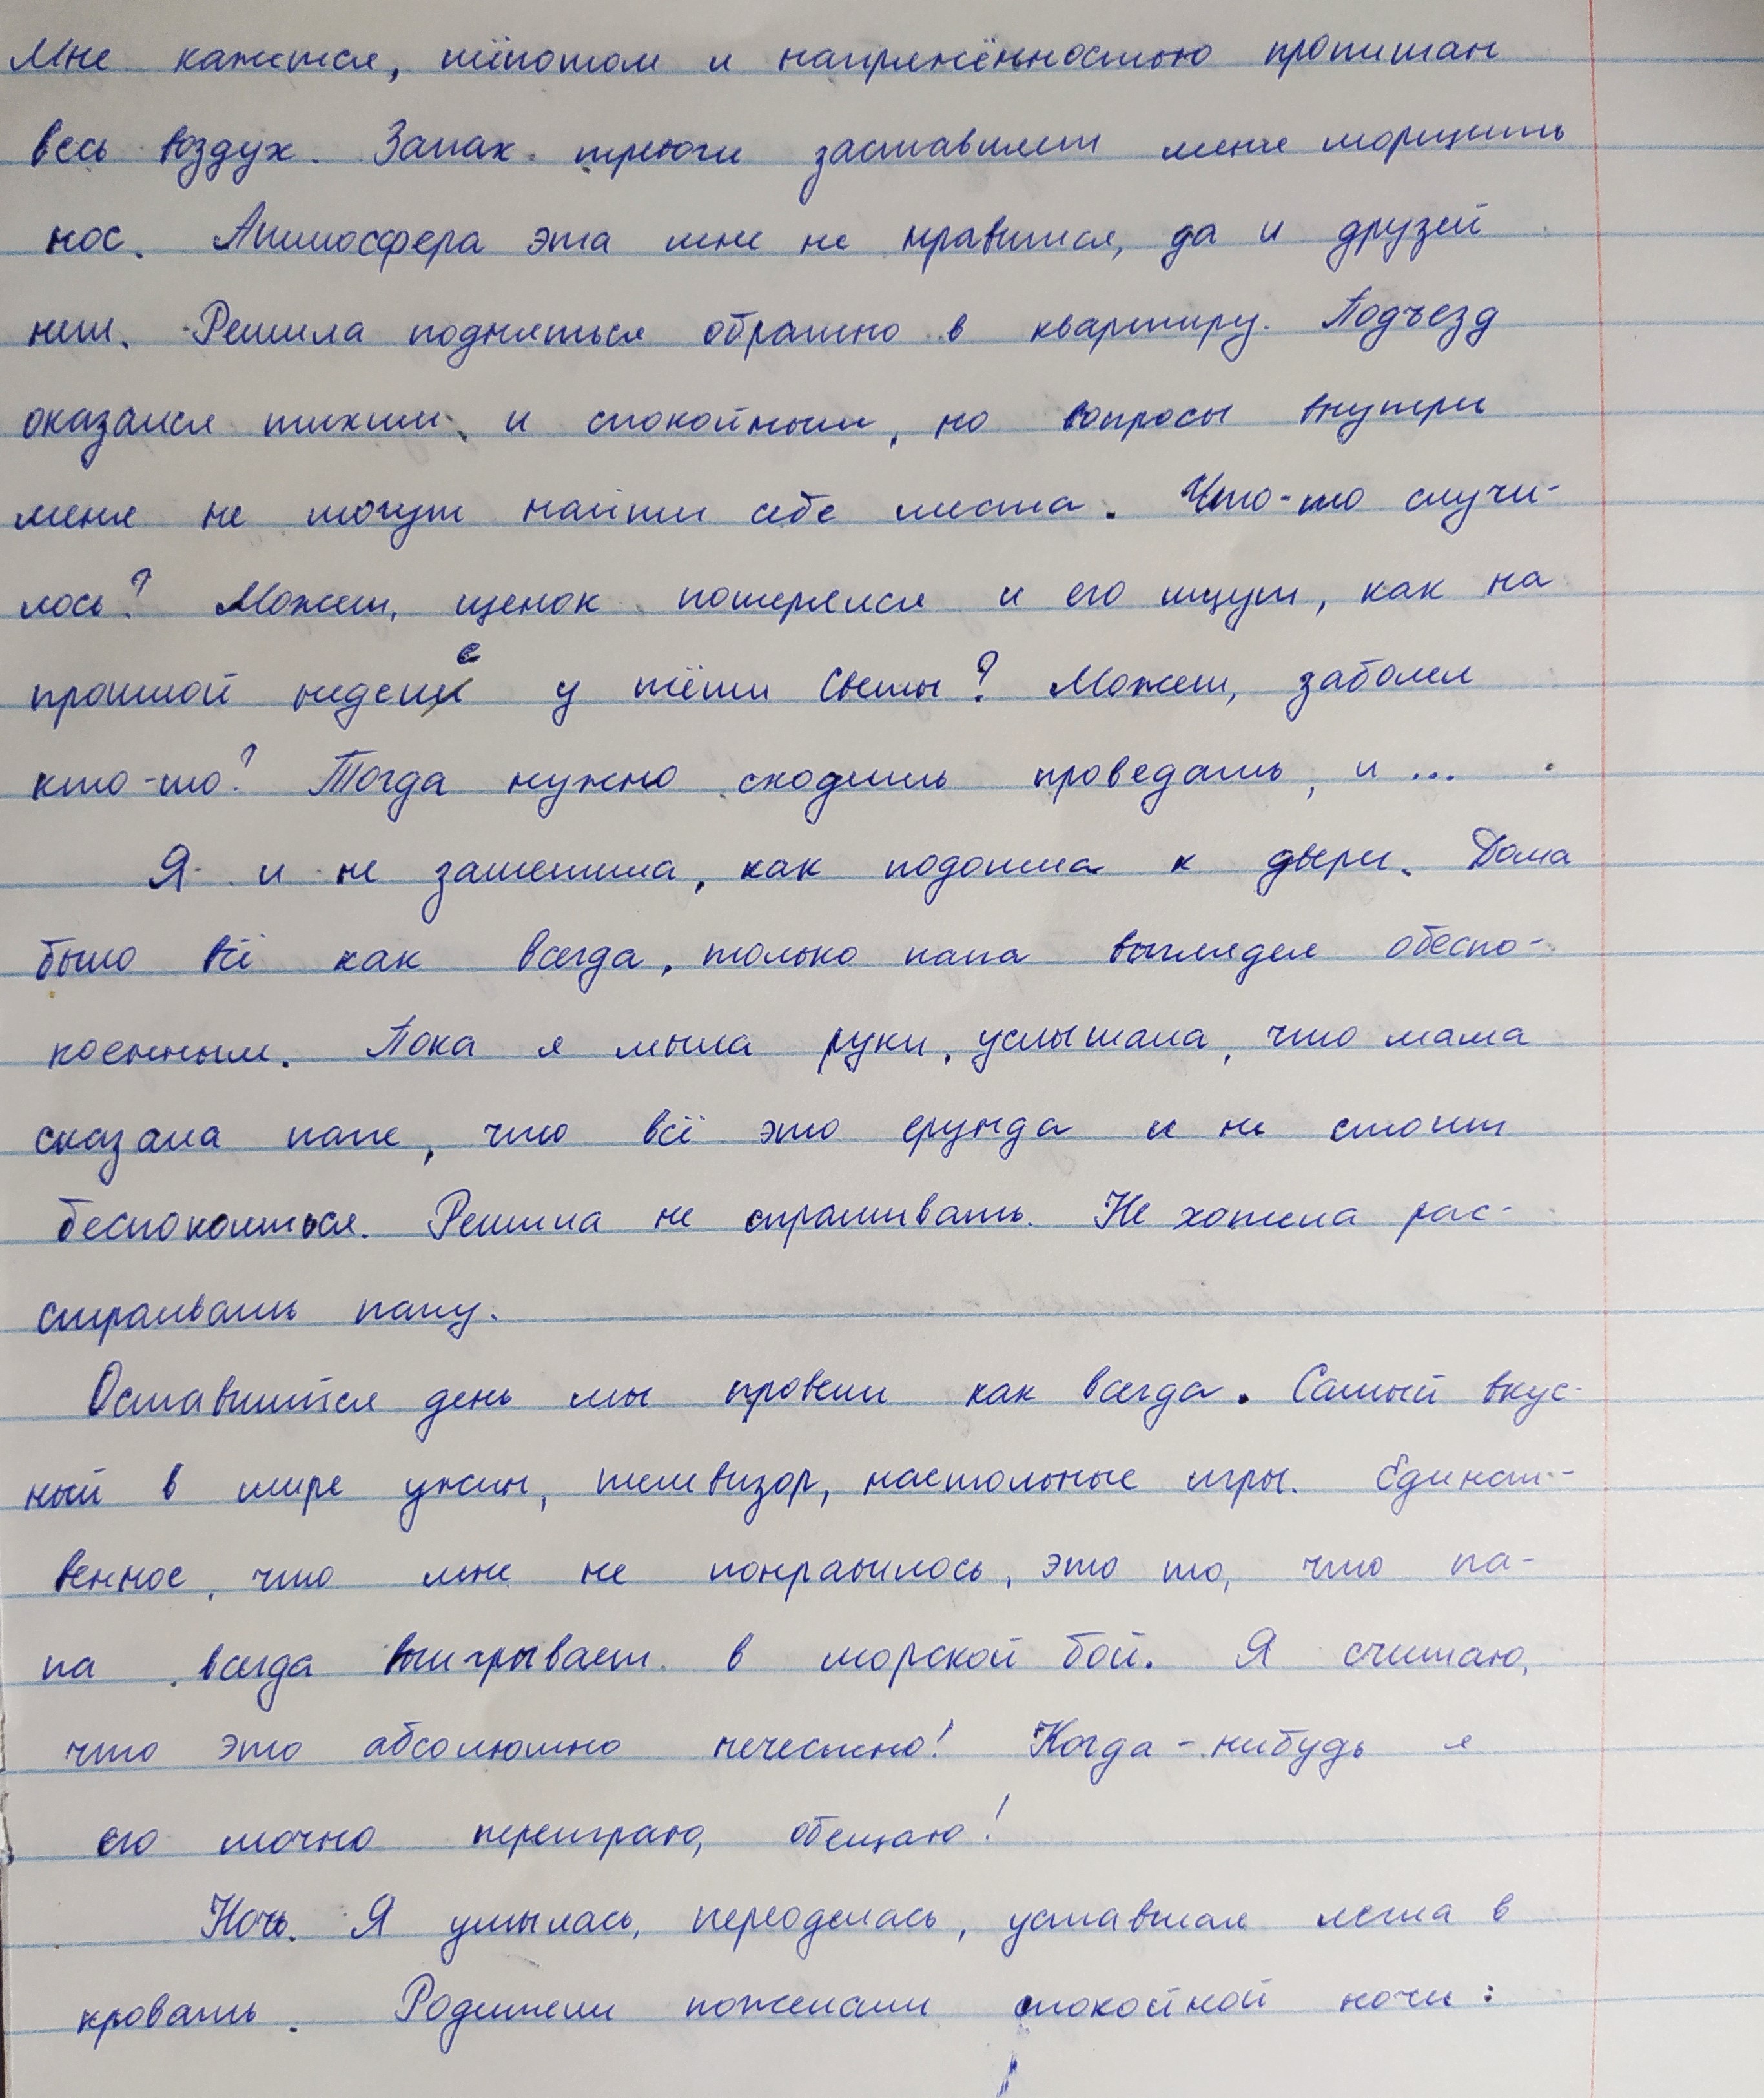 Мне кажется, шёпотом и напряжённостью пропитан
весь воздух. Запах тревоги заставляет меня морщить
нос. Атмосфера эта мне не нравится, да и друзей
нет. Решила подняться обратно в квартиру. Подъезд
оказался тихим и спокойным, но вопросы внутри
меня не могут найти себе места. Что-то случи-
лось? Может, щенок потерялся и его ищут, как на
прошлой неделе у тёти Светы? Может, заболел
кто-то? Тогда нужно сходить проведать, и ...
Я и не заметила, как подошла к двери. Дома
было всё как всегда, только папа выглядел обеспо-
коенным. Пока я мыла руки, услышала, что мама
сказала папе, что всё это ерунда и не стоит
беспокоиться. Решила не спрашивать. Не хотела рас-
страивать папу.
Оставшийся день мы провели как всегда. Самый вкус-
ный в мире ужин, телевизор, настольные игры. Единст-
венное, что мне не понравилось, это то, что па-
па всегда выигрывает в морской бой. Я считаю,
что это абсолютно нечестно! Когда-нибудь я
его точно переиграю, обещаю!
Ночь. Я умылась, переоделась, уставшая легла в
кровать. Родители пожелали спокойной ночи: